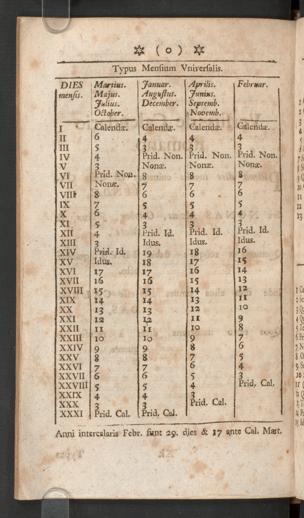 ( o )
Typus Mensium Vniversalis.
DIES mensis. Martius. Majus. Julius. October. Januar. Augustus. December. Aprilis. Junius. Septemb. Novemb. Februar.
I Calendæ. Calendæ. Calendæ. Calendæ.
II 6 4 4 4
III 5 3 3 3
IV 4 Prid. Non. Prid. Non. Prid. Non.
V 3 Nonæ. Nonæ. Nonæ.
VI Prid. Non. 8 8 8
VII Nonæ. 7 7 7
VIII 8 6 6 6
IX 7 5 5 5
X 6 4 4 4
XI 5 3 3 3
XII 4 Prid. Id. Prid. Id. Prid. Id.
XIII 3 Idus. Idus. Idus.
XIV Prid. Id. 19 18 16
XV Idus. 18 17 15
XVI 17 17 16 14
XVII 16 16 15 13
XVIII 15 15 14 12
XIX 14 14 13 11
XX 13 13 12 10
XXI 12 12 11 9
XXII 11 11 10 8
XXIII 10 10 9 7
XXIV 9 9 8 6
XXV 8 8 7 5
XXVI 7 7 6 4
XXVII 6 6 5 3
XXVIII 5 5 4 Prid. Cal.
XXIX 4 4 3
XXX 3 3 Prid. Cal.
XXXI Prid. Cal. Prid. Cal.
Anni intercalaris Febr. sunt 29. dies & 17 ante Cal. Mart.